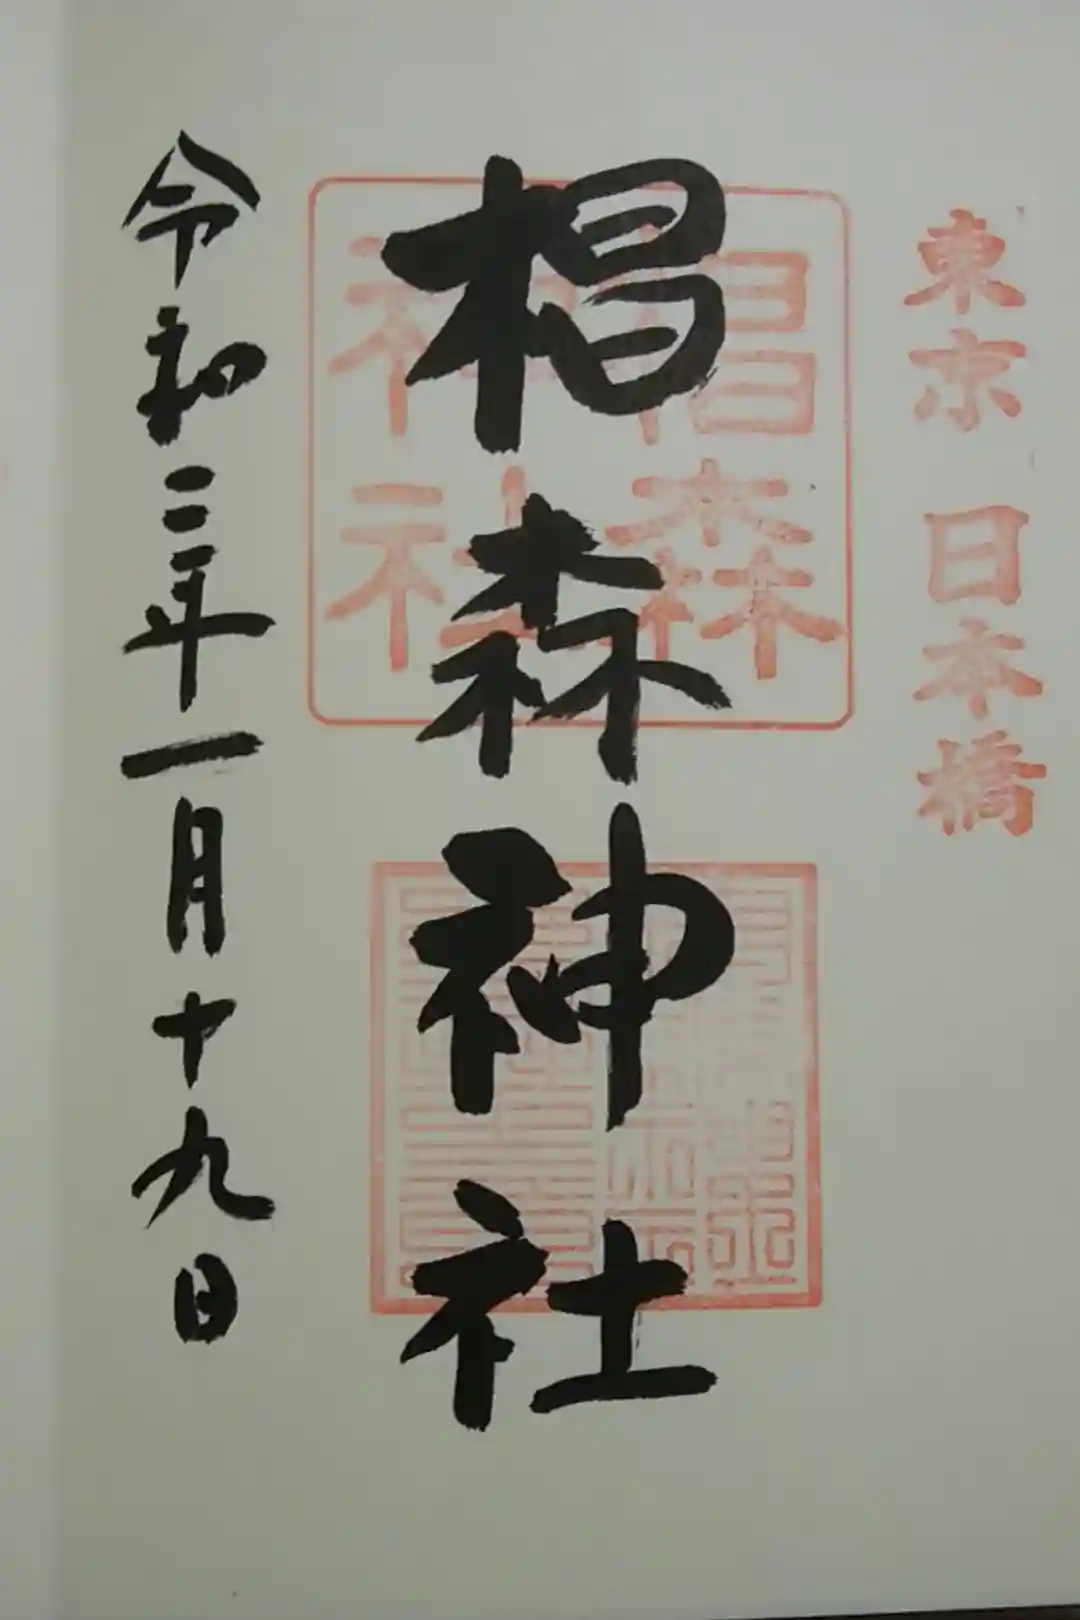 東京 日本橋
椙森神社
椙森神社
令和二年一月十九日